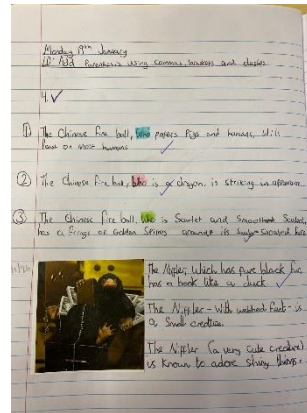 Monday 19th January
LO: Add Parenthesis using commas, brackets and dashes
4. ✓
① The Chinese Fire ball, who prefers Pigs and humans, still
on most humans
② The Chinese fire ball, who is a dragon, is striking in
③ The Chinese fire ball, who is Scarlet and Smooth
has a fringe of Golden Spines around its
The Niffler, which has pure black fur,
has a beak like a duck.
The Niffler - with webbed feet - is
a Small creature.
The Niffler (a very cute creature)
is known to adore shiny things.